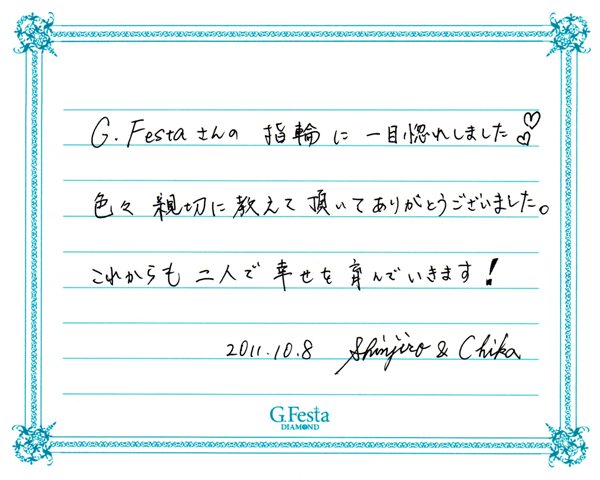 G.Festaさんの 指輪に 一目惚れしました♡♡
色々 親切に教えて頂いてありがとうございました。
これからも 二人で 幸せを 育んでいきます!
2011.10.8 Shinjiro & Chika
G.Festa
DIAMOND